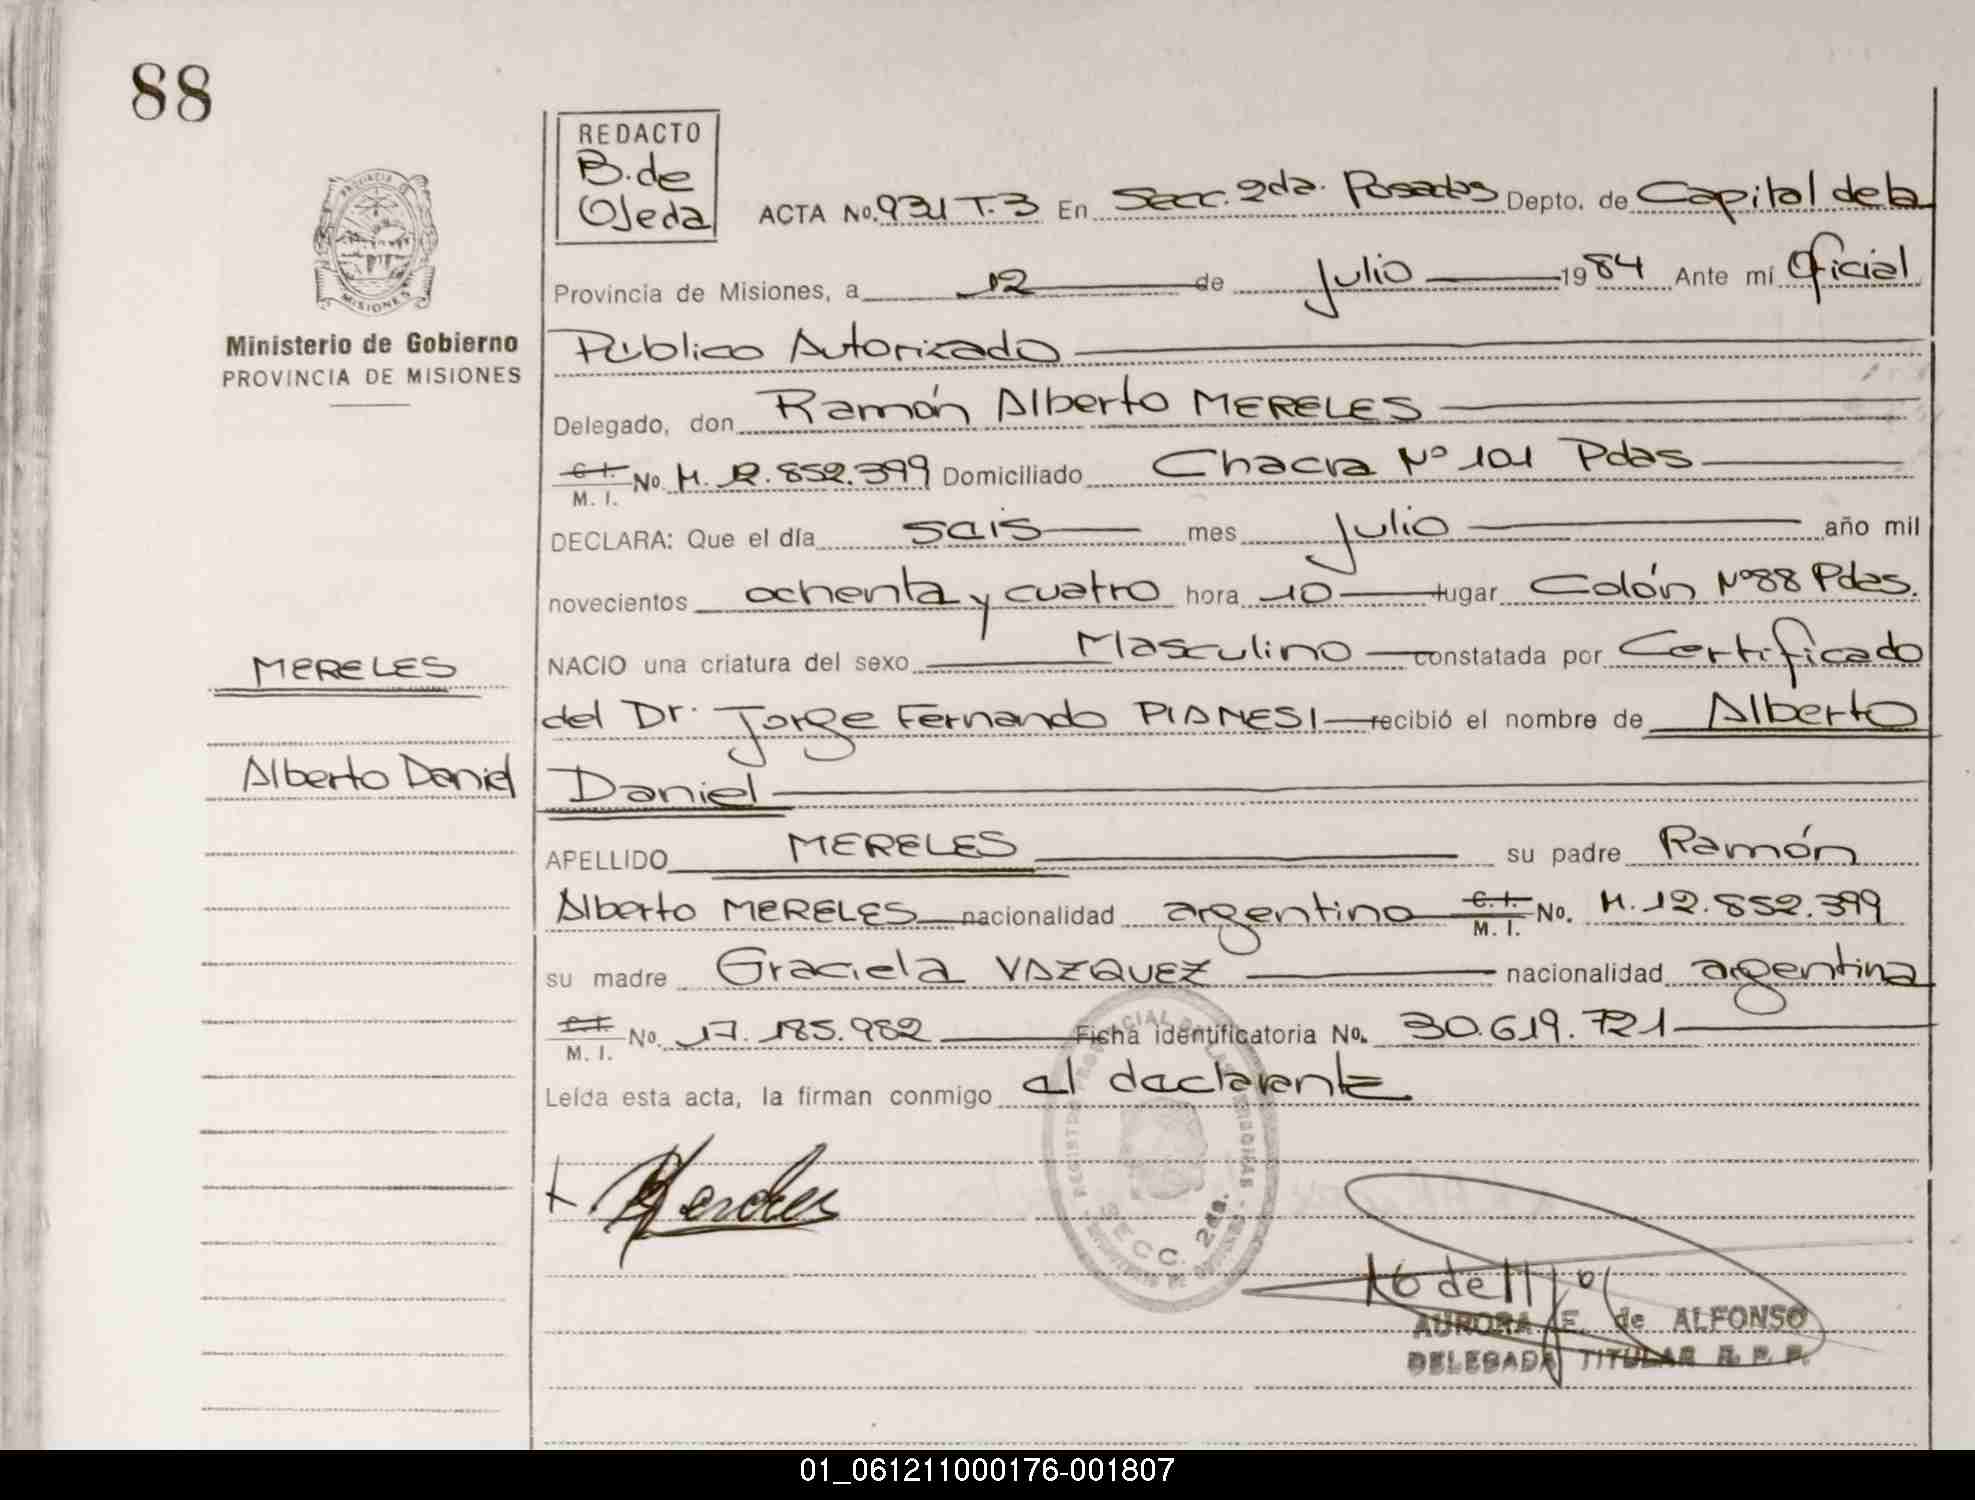 88
REDACTO
B. de
Ojeda
ACTA No. 931 T. 3 En Secc. 2da. Posadas Depto. de Capital de la
Provincia de Misiones, a 12 de Julio 1984 Ante mí Oficial
Público Autorizado
Delegado, don Ramón Alberto MERELES
C. I.
M. I. No. M. 12.852.399 Domiciliado Chacra Nº 101 Pdas
DECLARA: Que el día seis mes Julio año mil
novecientos ochenta y cuatro hora 10 lugar Colón Nº 88 Pdas.
NACIO una criatura del sexo Masculino constatada por Certificado
del Dr. Jorge Fernando PIANESI recibió el nombre de Alberto
Daniel
APELLIDO MERELES su padre Ramón
Alberto MERELES nacionalidad argentino C. I.
M. I. No. M. 12.852.399
su madre Graciela VAZQUEZ nacionalidad argentina
C. I.
M. I. No. 17.185.982 Ficha identificatoria No. 30.619.721
Leída esta acta, la firman conmigo el declarante
PROVINCIA DE
MISIONES
Ministerio de Gobierno
PROVINCIA DE MISIONES
MERELES
Alberto Daniel
REGISTRO PROVINCIAL DE LAS PERSONAS
SECC. 2da.
AURORA E. de ALFONSO
DELEGADA TITULAR R. P. P.
01_061211000176-001807